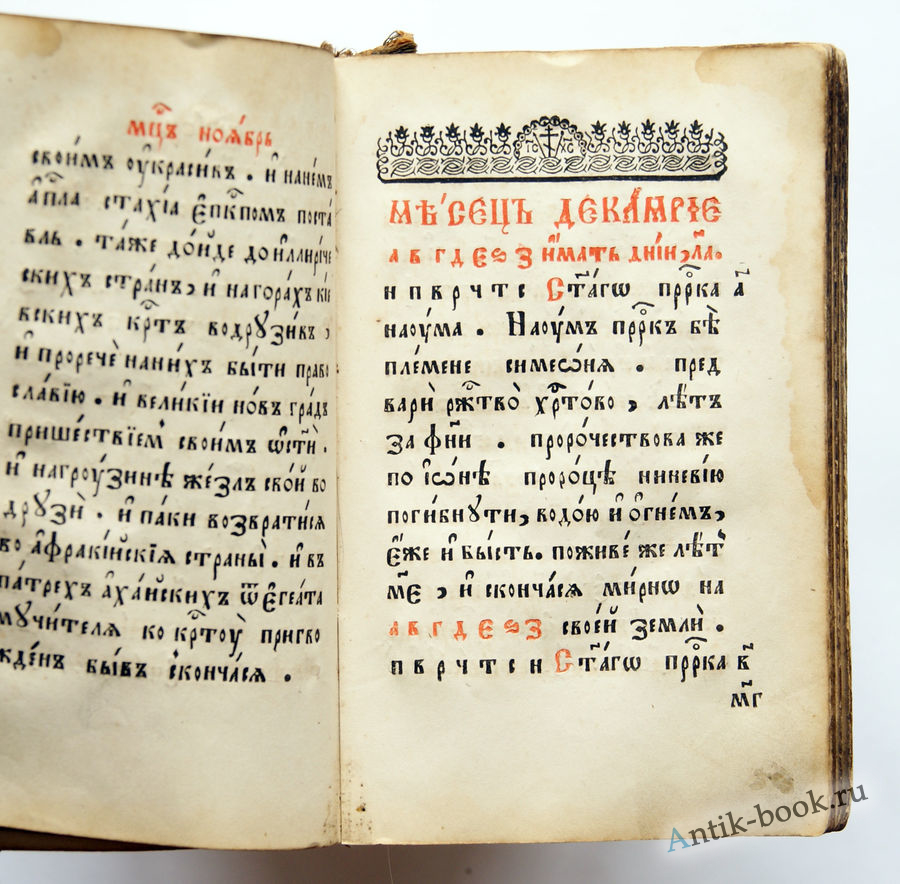 мц҃ъ ноѧ́врь
свои́мъ оу҆краси́въ . и҆ нане́мъ
а҆пⷭ҇ла стахі́а є҆пкⷭ҇помъ поста́
вль . та́же до́йде до и҆ллирі́че
скихъ стра́нъ, и҆ нагора́хъ кі́е
вскихъ крⷭ҇тъ водрузи́въ ,
и҆ проречѐ нани́хъ бы́ти право
сла́вїю . и҆ вели́кїи но́въ гра́дъ
прише́ствїемъ свои́мъ ѡ҆ст҃и .
и҆ нагроу́зинѣ же́злъ сво́й во
друзѝ . и҆ па́ки возврати́сѧ
во а҆фраки́йскїѧ страны̀ . и҆ въ
па́трехъ а҆ха́йскихъ ѿ є҆геа́та
мꙋчи́телѧ ко крⷭ҇тоу̀ пригво
жде́нъ бы́въ сконча́сѧ .
мѣ́сецъ декамрїе
а в г д є ѕ з и҆́мать дні́и, ла҃.
н п в р ч т с Ст҃а́гѡ прⷪ҇рка а҃
нао́ума . Нао́умъ прⷪ҇ркъ бѣ̀
пле́мене симеѡ́нѧ . пред
варѝ ржⷭ҇тво̀ хрⷭ҇то́во , лѣ́тъ
за ф҃н и҆ . проро́чествова же
по і҆ѡ́нѣ проро́цѣ ниневі́ю
поги́бнꙋти, водо́ю и҆ о҆гне́мъ,
є҆́же и҆ бы́сть. поживе́ же лѣ́тъ
м҃е , и҆ сконча́сѧ ми́рнѡ на
а в г д є ѕ з свое́й землѝ .
п в р ч т с н Ст҃а́гѡ прⷪ҇рка в҃
м҃г
ІС ХС
Antik-book.ru